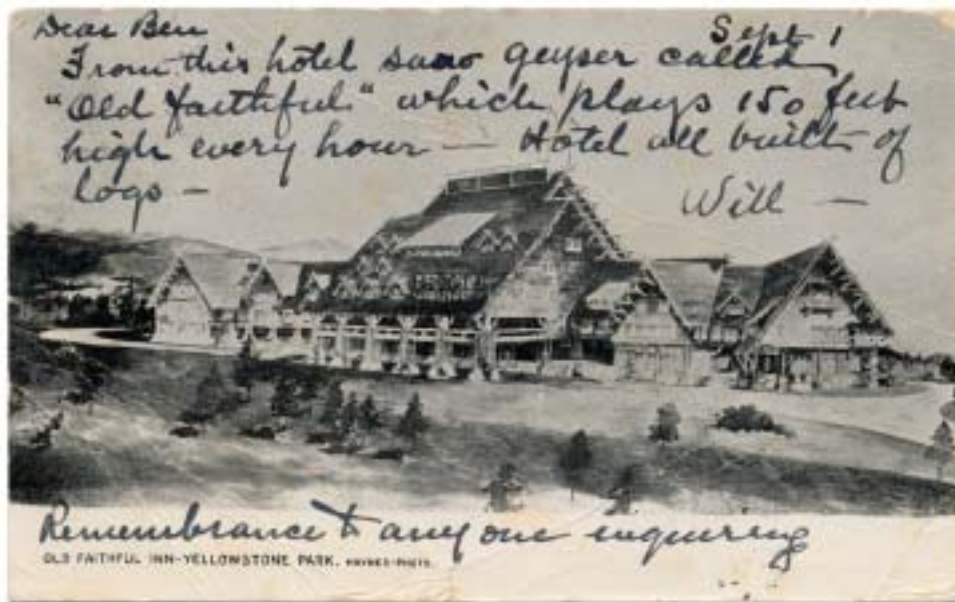 Dear Ben
Sept 1
From this hotel saw geyser called
"Old faithful" which plays 150 feet
high every hour — Hotel all built of
logs —
Will —
Remembrance to any one inquiring
OLD FAITHFUL INN-YELLOWSTONE PARK. HAYNES-PHOTO.